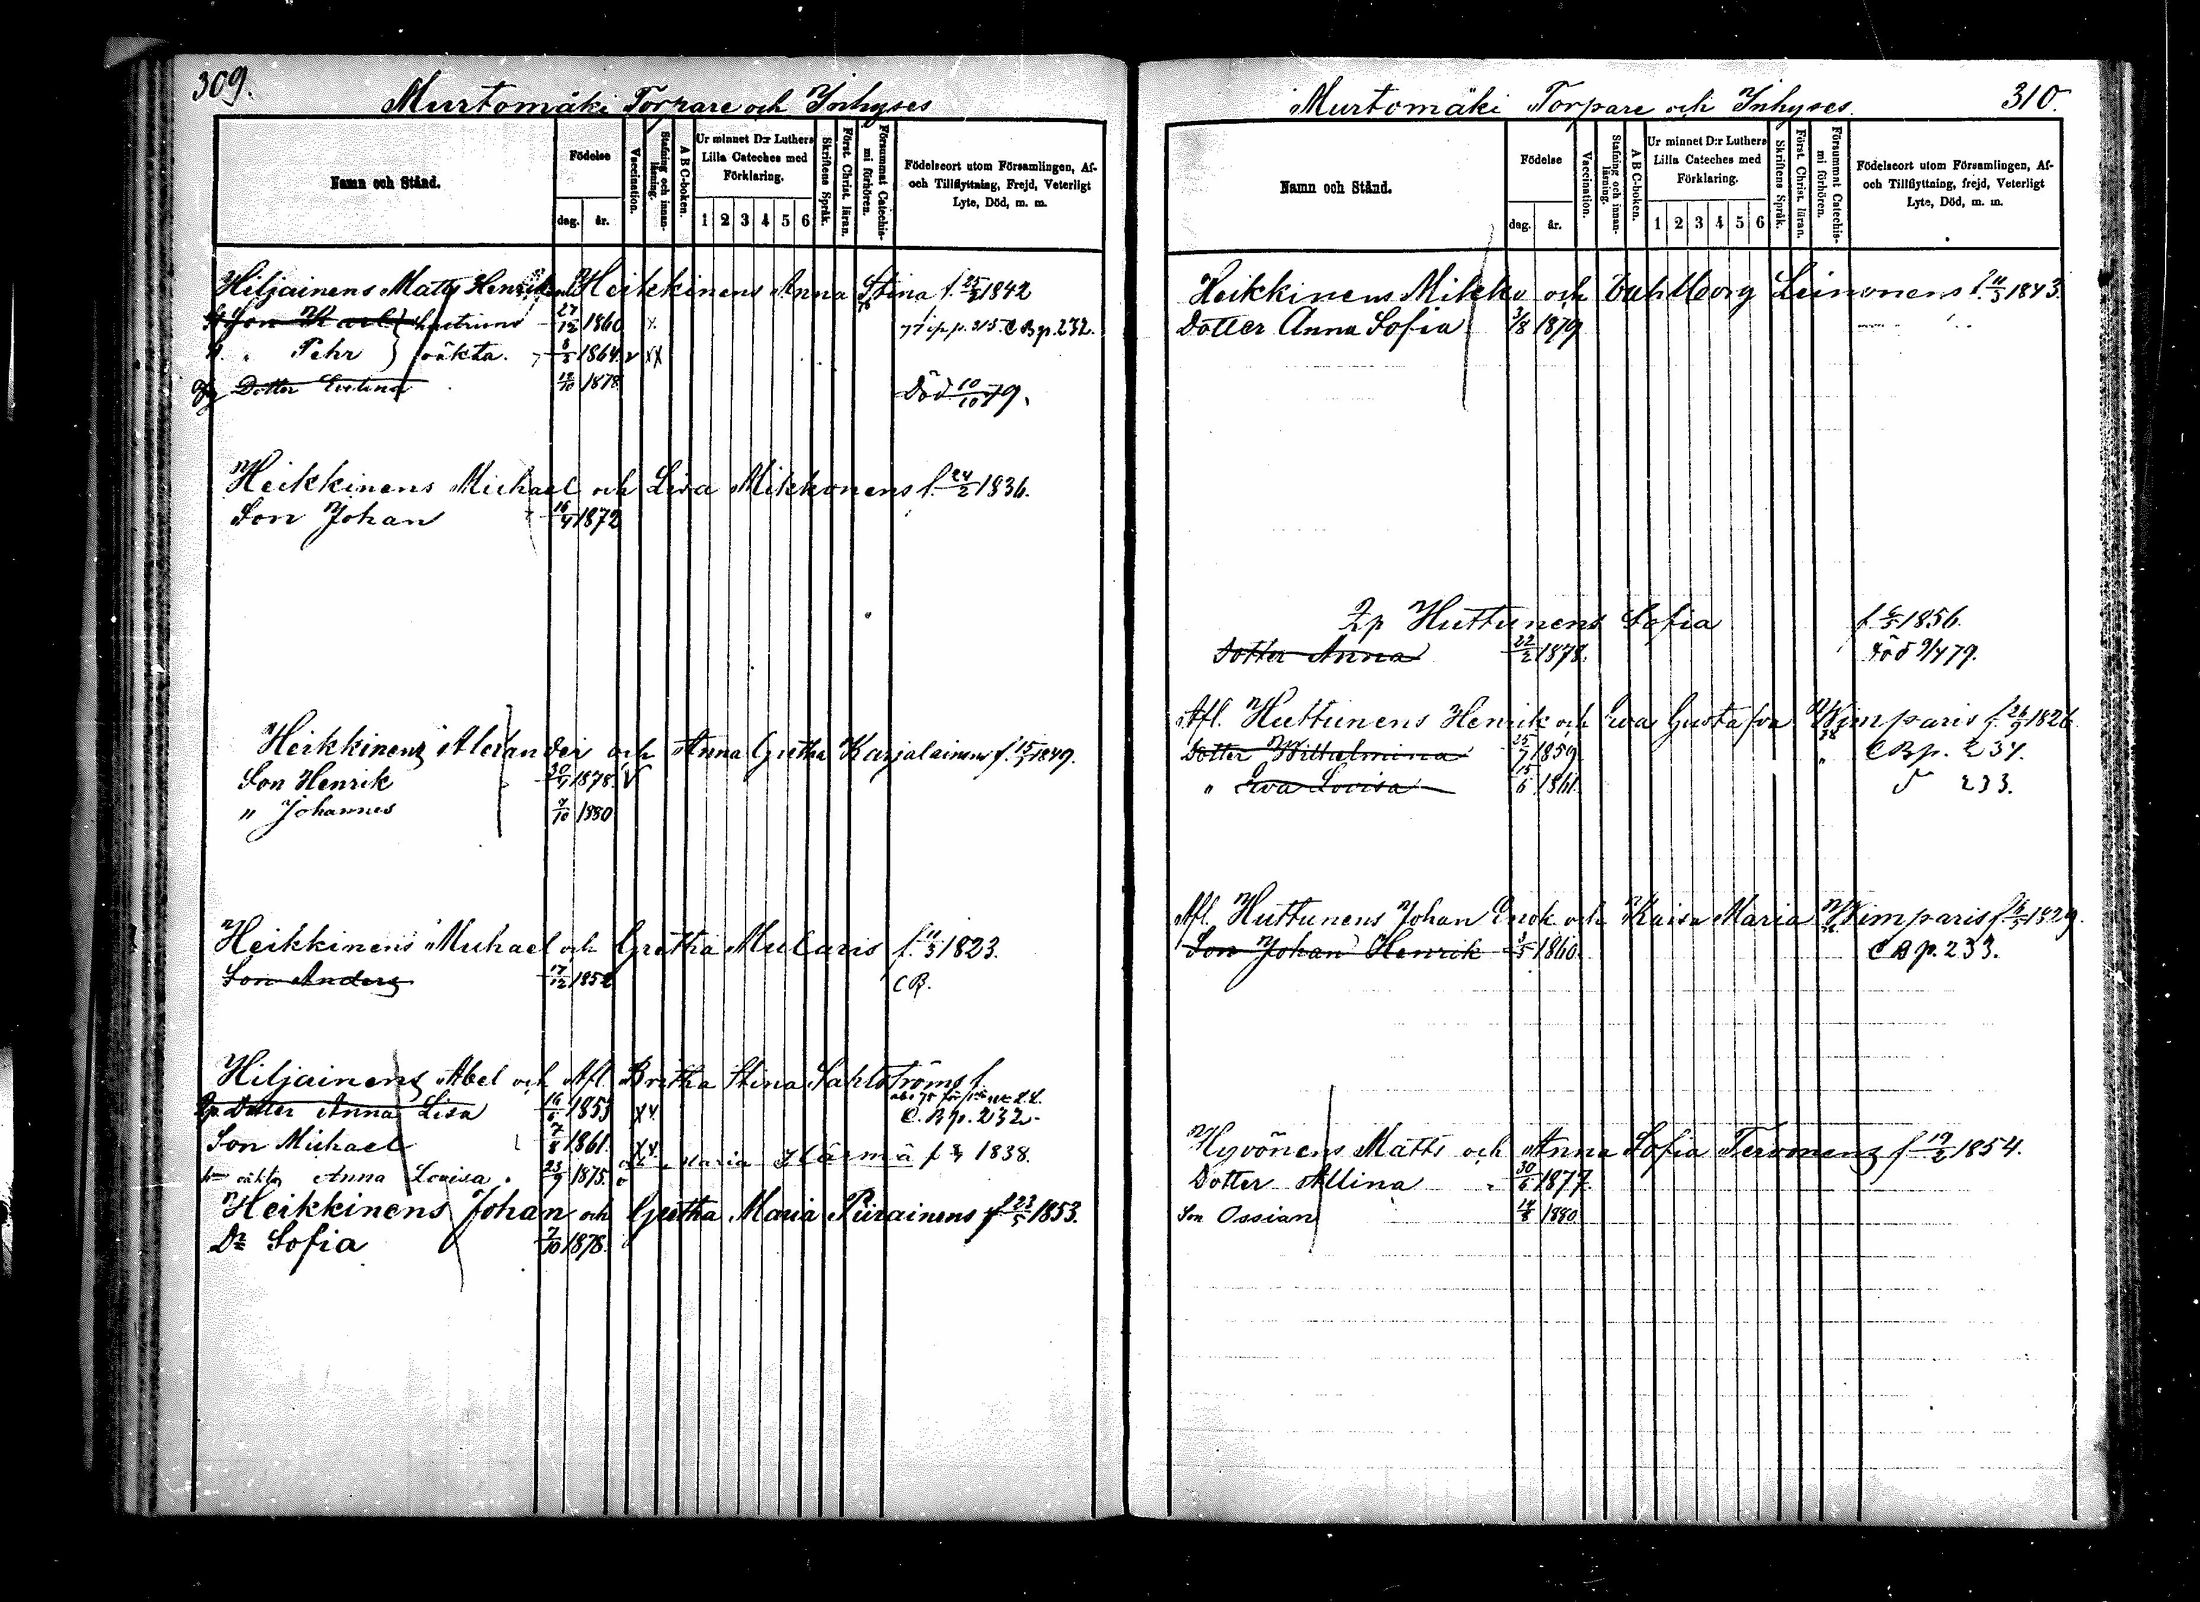 309.
Murtomäki Torpare och Inhyses
Namn och Stånd.
Födelse
dag. år.
Vaccination.
Stafning och innanläsning.
A B C-boken.
Ur minnet D:r Luthers Lilla Cateches med Förklaring.
1 2 3 4 5 6
Skriftens Språk.
Först. Christ. läran.
Försummat Catechismi förhören.
Födelseort utom Församlingen, Af- och Tillflyttning, Frejd, Veterligt Lyte, Död, m. m.
Hiljainens Matts Henrik Heikkinens Anna Stina f. 1842
Son 27/12 1860 x C B p. 232.
" Pehr 1864 v xx
Dotter 12/10 1878 Död 10/10 79.
Heikkinens Michael och Lisa Mikkonens f. 24/2 1836.
Son Johan 1872
Heikkinens Alexander och Anna Gretha Karjalainens f. 15/ 1849.
Son Henrik 30/ 1878. v
" Johannes 9/10 1880
Heikkinens Michael och Gretha Mularis f. 1823.
Son Anders 17/12 1852 C B.
Hiljainens Abel och Afl. Britha Stina Sahlströms f.
Dotter Anna Lisa 16/ 1853 xx C. B p. 232
Son Michael 7/8 1861. xx Maria Härmä f 1838.
Anna Lovisa. 23/9 1875.
Heikkinens Johan och Gretha Maria Piirainens f 22/5 1853.
Dr Sofia 7/10 1878.
Murtomäki Torpare och Inhyses.
310.
Namn och Stånd.
Födelse
dag. år.
Vaccination.
Stafning och innanläsning.
A B C-boken.
Ur minnet D:r Luthers Lilla Cateches med Förklaring.
1 2 3 4 5 6
Skriftens Språk.
Först. Christ. läran.
Försummat Catechismi förhören.
Födelseort utom Församlingen, Af- och Tillflyttning, frejd, Veterligt Lyte, Död, m. m.
Heikkinens Mikko och Leinonens f. 11/3 1843.
Dotter Anna Sofia 3/8 1879
Huttunens Sofia f. 1856.
Dotter Anna 22/2 1878. död 9/4 79.
Afl. Huttunens Henrik och Eva Gustafva Wimparis f. 1826
Dotter Wilhelmina 25/7 1859 C B p. 234.
" Eva Lovisa 15/6 1861 233.
Afl. Huttunens Johan Enok och Kaisa Maria Wimparis f. 1829.
Son Johan Henrik 1860 C B p. 233.
Hyvönens Matts och Anna Sofia Tervonens f 19/2 1854.
Dotter Allina 30/6 1877
Son Ossian 14/8 1880